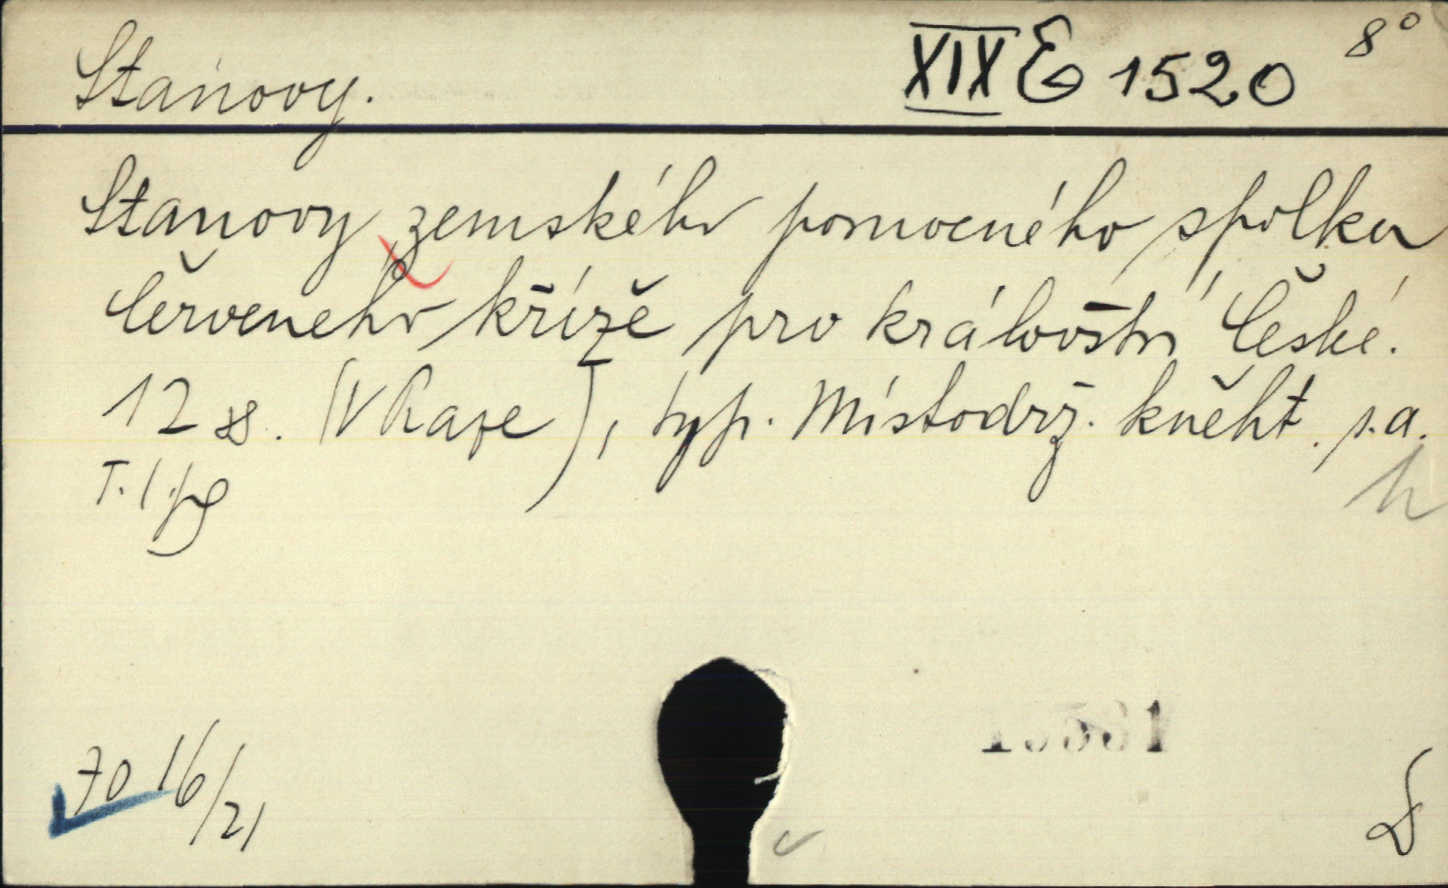 Stanovy. XIX E 1520 8°
Stanovy zemského pomocného spolku
Červeného kříže pro království České.
12 s. (V Praze), typ. Místodrž. kněht. s.a.
h
70 16/21